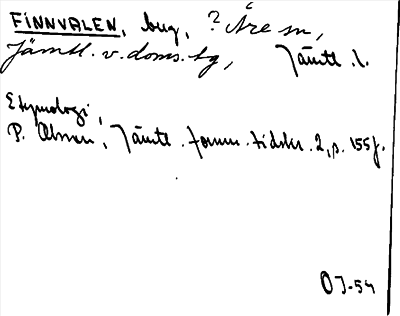 FINNVALEN, bug, ? Åre sn,
Jämtl. v. doms. tg, Jämtl. l.
Etymologi,
P. Olsson, Jämtl. fornm. tidskr. 2, p. 155 f.
OJ-54